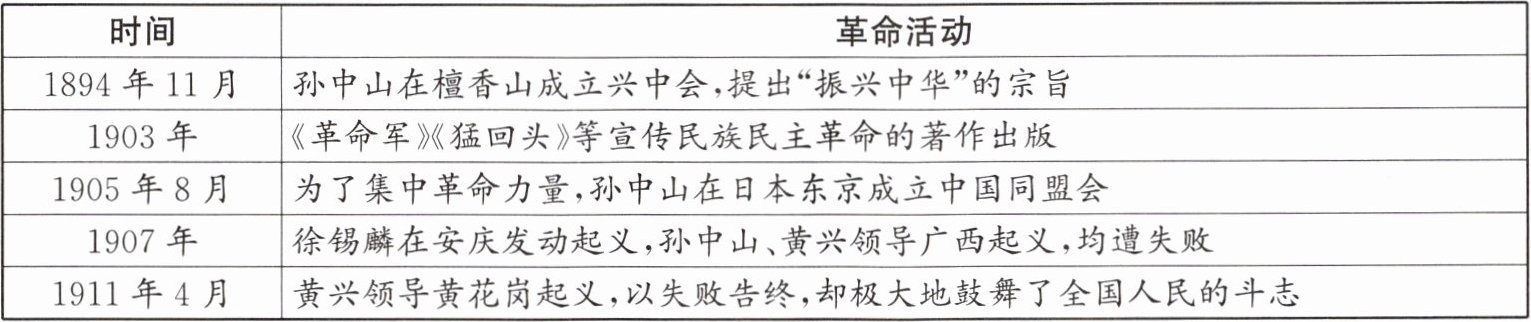 时间 革命活动
1894 年 11 月 孙中山在檀香山成立兴中会,提出“振兴中华”的宗旨
1903 年 《革命军》《猛回头》等宣传民族民主革命的著作出版
1905 年 8 月 为了集中革命力量,孙中山在日本东京成立中国同盟会
1907 年 徐锡麟在安庆发动起义,孙中山、黄兴领导广西起义,均遭失败
1911 年 4 月 黄兴领导黄花岗起义,以失败告终,却极大地鼓舞了全国人民的斗志